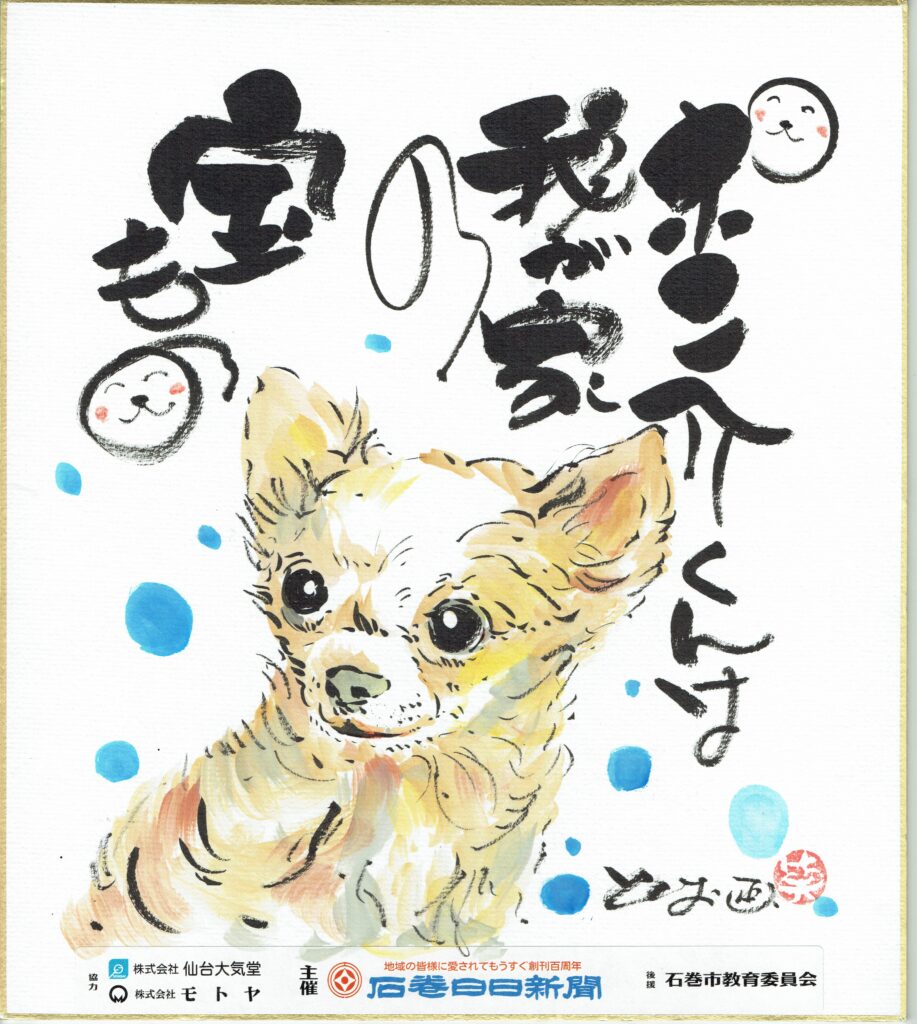 ポン介くんは
我が家
の
宝もの
とお画
協力
株式会社 仙台大気堂
株式会社 モトヤ
主催
地域の皆様に愛されてもうすぐ創刊百周年
石巻日日新聞
後援
石巻市教育委員会